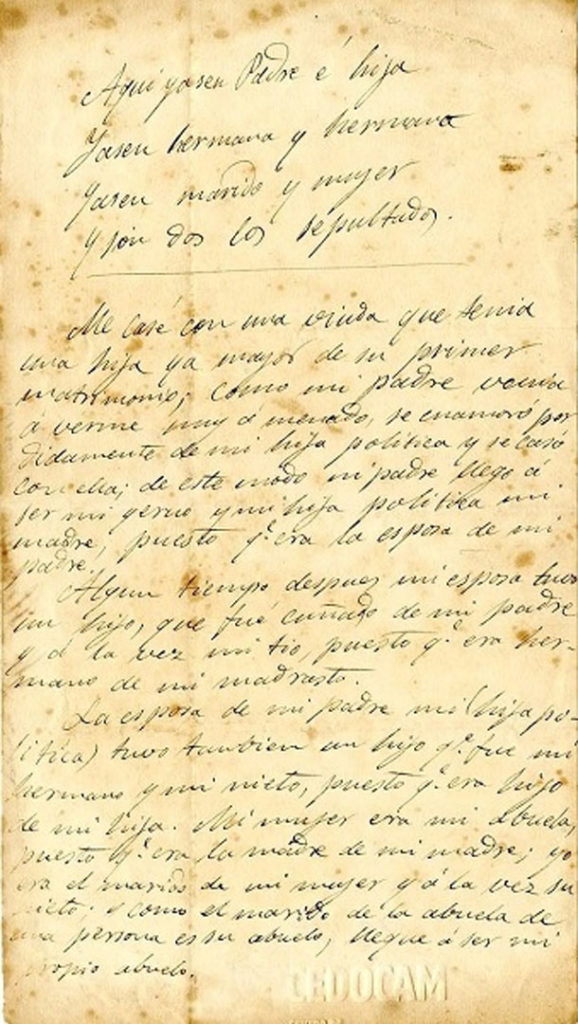 Aqui yasen Padre é hija
Yasen hermana y hermana
Yasen marido y mujer
Y son dos los sepultados.
Me casé con una viuda que tenia
una hija ya mayor de su primer
matrimonio; como mi padre venia
á verme muy á menudo, se enamoró per
didamente de mi hija politica y se casó
con ella; de este modo mi padre llego á
ser mi yerno y mi hija politica mi
madre, puesto q.e era la esposa de mi
padre.
Algun tiempo despues mi esposa tuvo
un hijo, que fué cuñado de mi padre
y á la vez mi tio, puesto q.e era her-
mano de mi madrasta.
La esposa de mi padre mi (hija po-
litica) tuvo tambien un hijo q.e fue mi
hermano y mi nieto, puesto q.e era hijo
de mi hija. Mi mujer era mi abuela,
puesto q.e era la madre de mi madre; yo
era el marido de mi mujer y á la vez su
nieto; y como el marido de la abuela de
una persona es su abuelo, llegue á ser mi
propio abuelo.
CEDOCAM